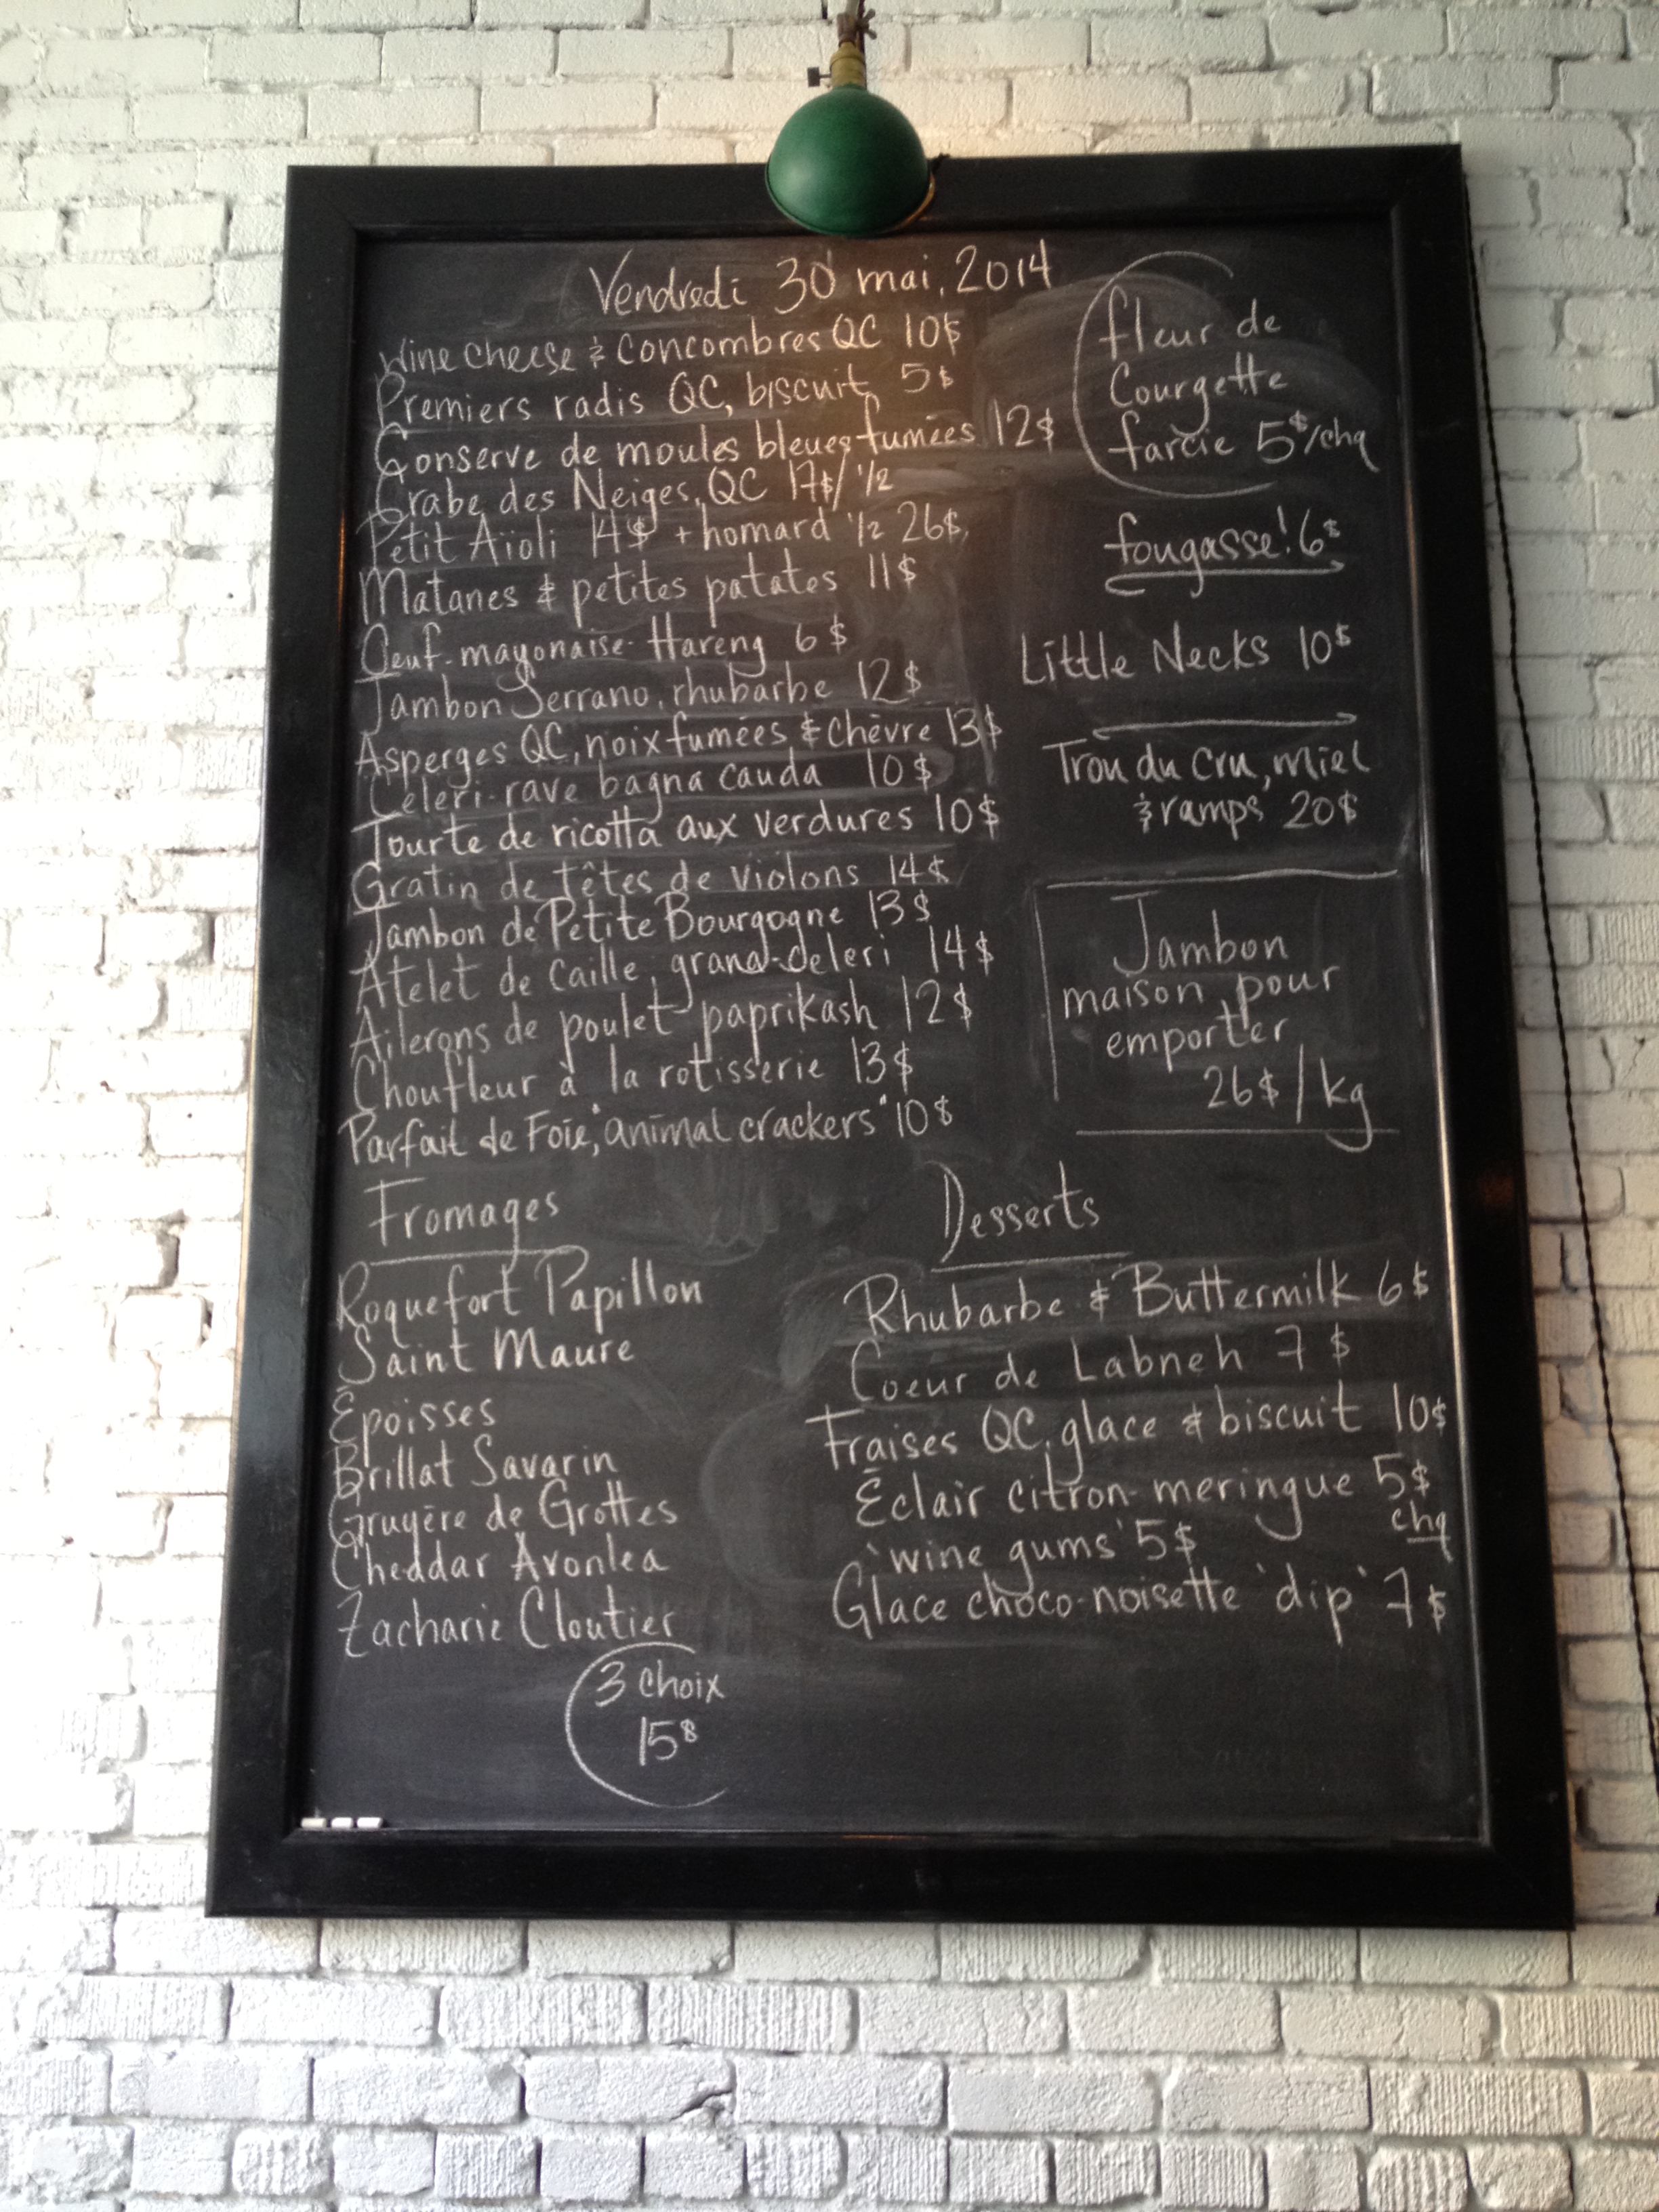 Vendredi 30 mai, 2014
Wine cheese & Concombres QC 10$
Premiers radis QC, biscuit 5$
Conserve de moules bleues fumées 12$
Crabe des Neiges, QC 17$/ 1/2
Petit Aïoli 14$ + homard 1/2 26$
Matanes & petites patates 11$
Oeuf-mayonaise-Hareng 6$
Jambon Serrano, rhubarbe 12$
Asperges QC, noix fumées & Chèvre 13$
Céleri-rave bagna cauda 10$
Tourte de ricotta aux verdures 10$
Gratin de têtes de violons 14$
Jambon de Petite Bourgogne 13$
Atelet de Caille, grand-celeri 14$
Ailerons de poulet paprikash 12$
Choufleur à la rotisserie 13$
Parfait de Foie, "animal crackers" 10$
fleur de
Courgette
farcie 5$/chq
fougasse! 6$
Little Necks 10$
Trou du Cru, miel
& ramps 20$
Jambon
maison, pour
emporter
26$/kg
Fromages
Roquefort Papillon
Saint Maure
Époisses
Brillat Savarin
Gruyère de Grottes
Cheddar Avonlea
Zacharie Cloutier
3 choix
15$
Desserts
Rhubarbe & Buttermilk 6$
Coeur de Labneh 7$
Fraises QC, glace & biscuit 10$
Éclair citron-meringue 5$
chq
'wine gums' 5$
Glace choco-noisette 'dip' 7$